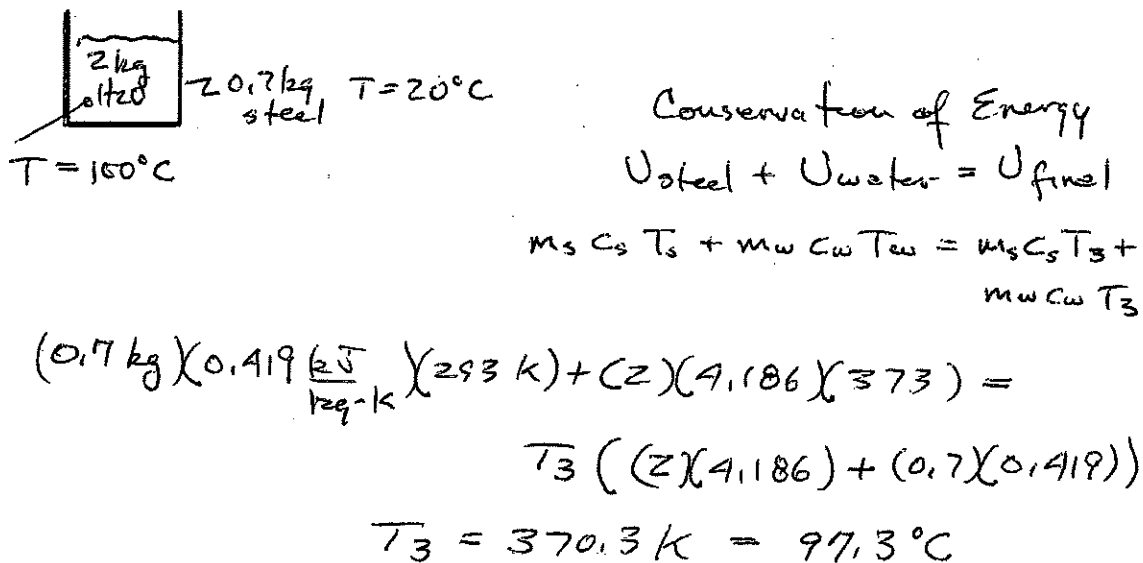 2 kg
H20
0.7 kg steel T = 20°C
T = 100°C
Conservation of Energy
Usteel + Uwater = Ufinal
ms cs Ts + mw cw Tw = ms cs T3 +
mw cw T3
(0.7 kg)(0.419 kJ/kg-K)(293 K) + (2)(4.186)(373) =
T3 ((2)(4.186) + (0.7)(0.419))
T3 = 370.3 K = 97.3°C